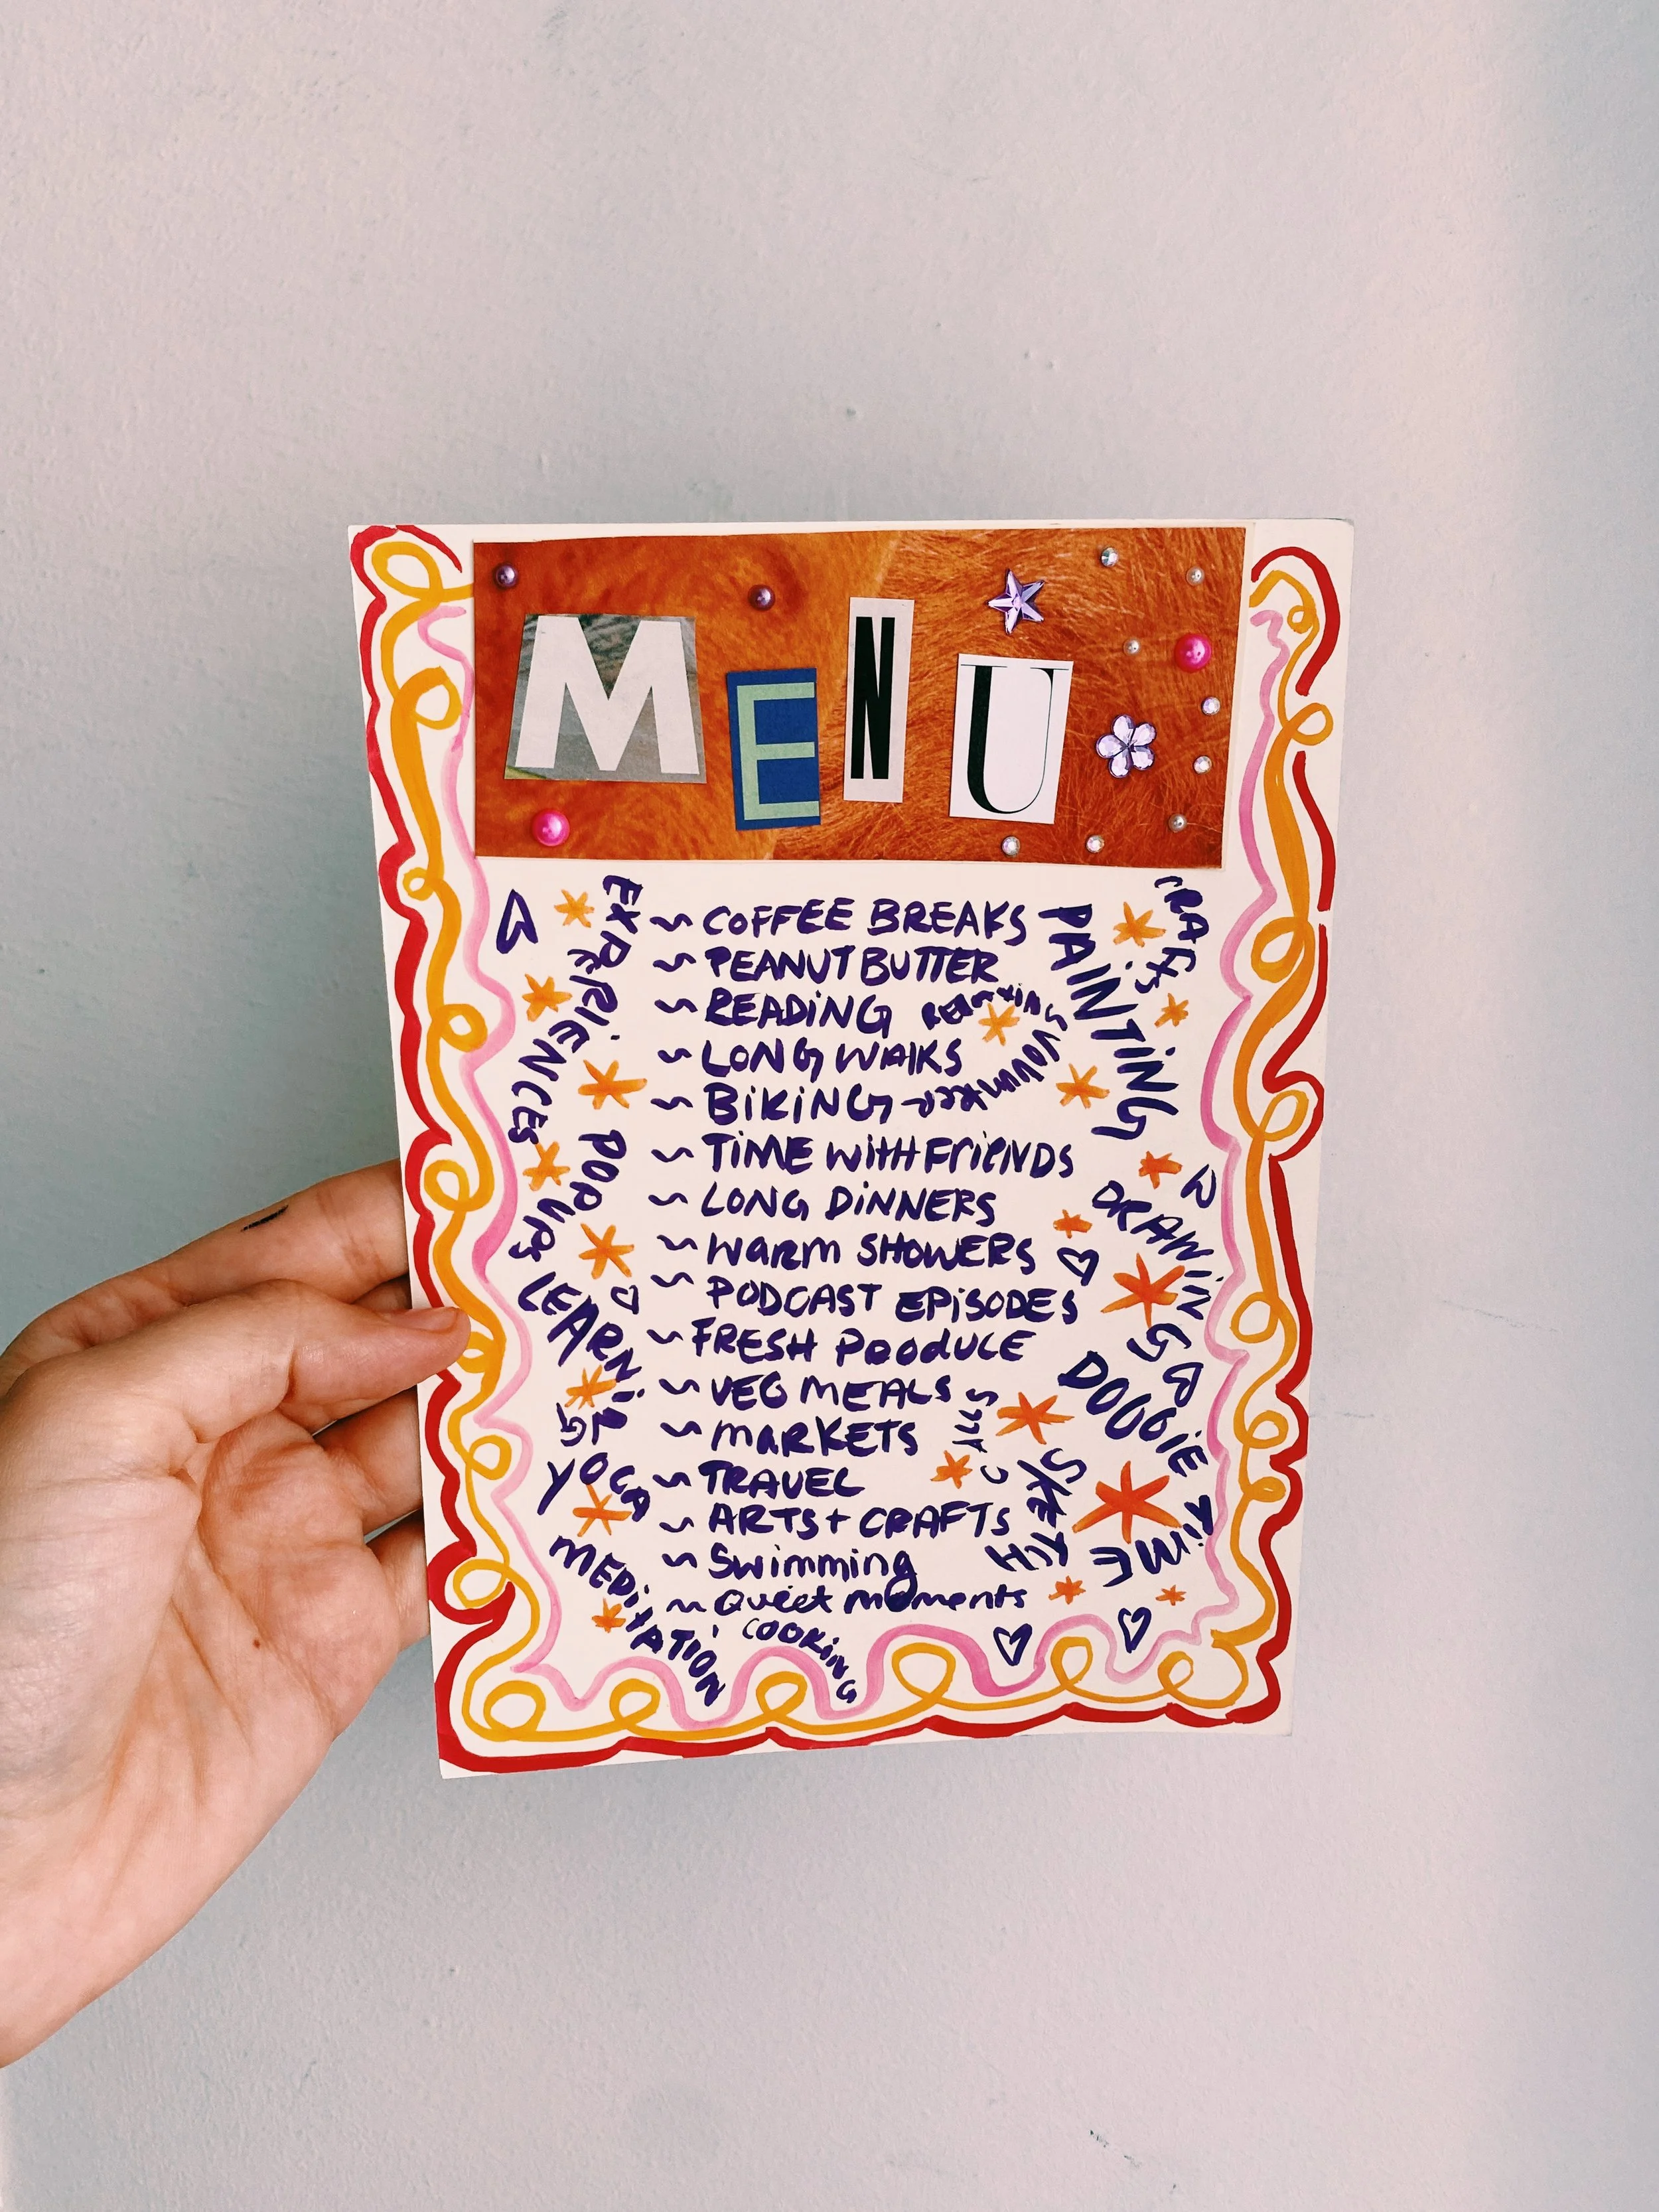 MENU
EXPERIENCES
POPUPS
LEARNiNG
YOGA
MEDiTATiON
~ COFFEE BREAKS
~ PEANUT BUTTER
~ READiNG
~ LONG WALKS
~ BiKiNG
~ TiME WiTH FriENDS
~ LONG DiNNERS
~ WARM SHOWERS
~ PODCAST EPiSODES
~ FRESH PRODUCE
~ VEG MEALS
~ MARKETS
~ TRAVEL
~ ARTS + CRAFTS
~ Swimming
~ Quiet moments
COOKiNG
VOLUNTEER
CALLS
PAiNTiNG
CRAFTS
DRAWiNG
DOGGiE TiME
SKETCH